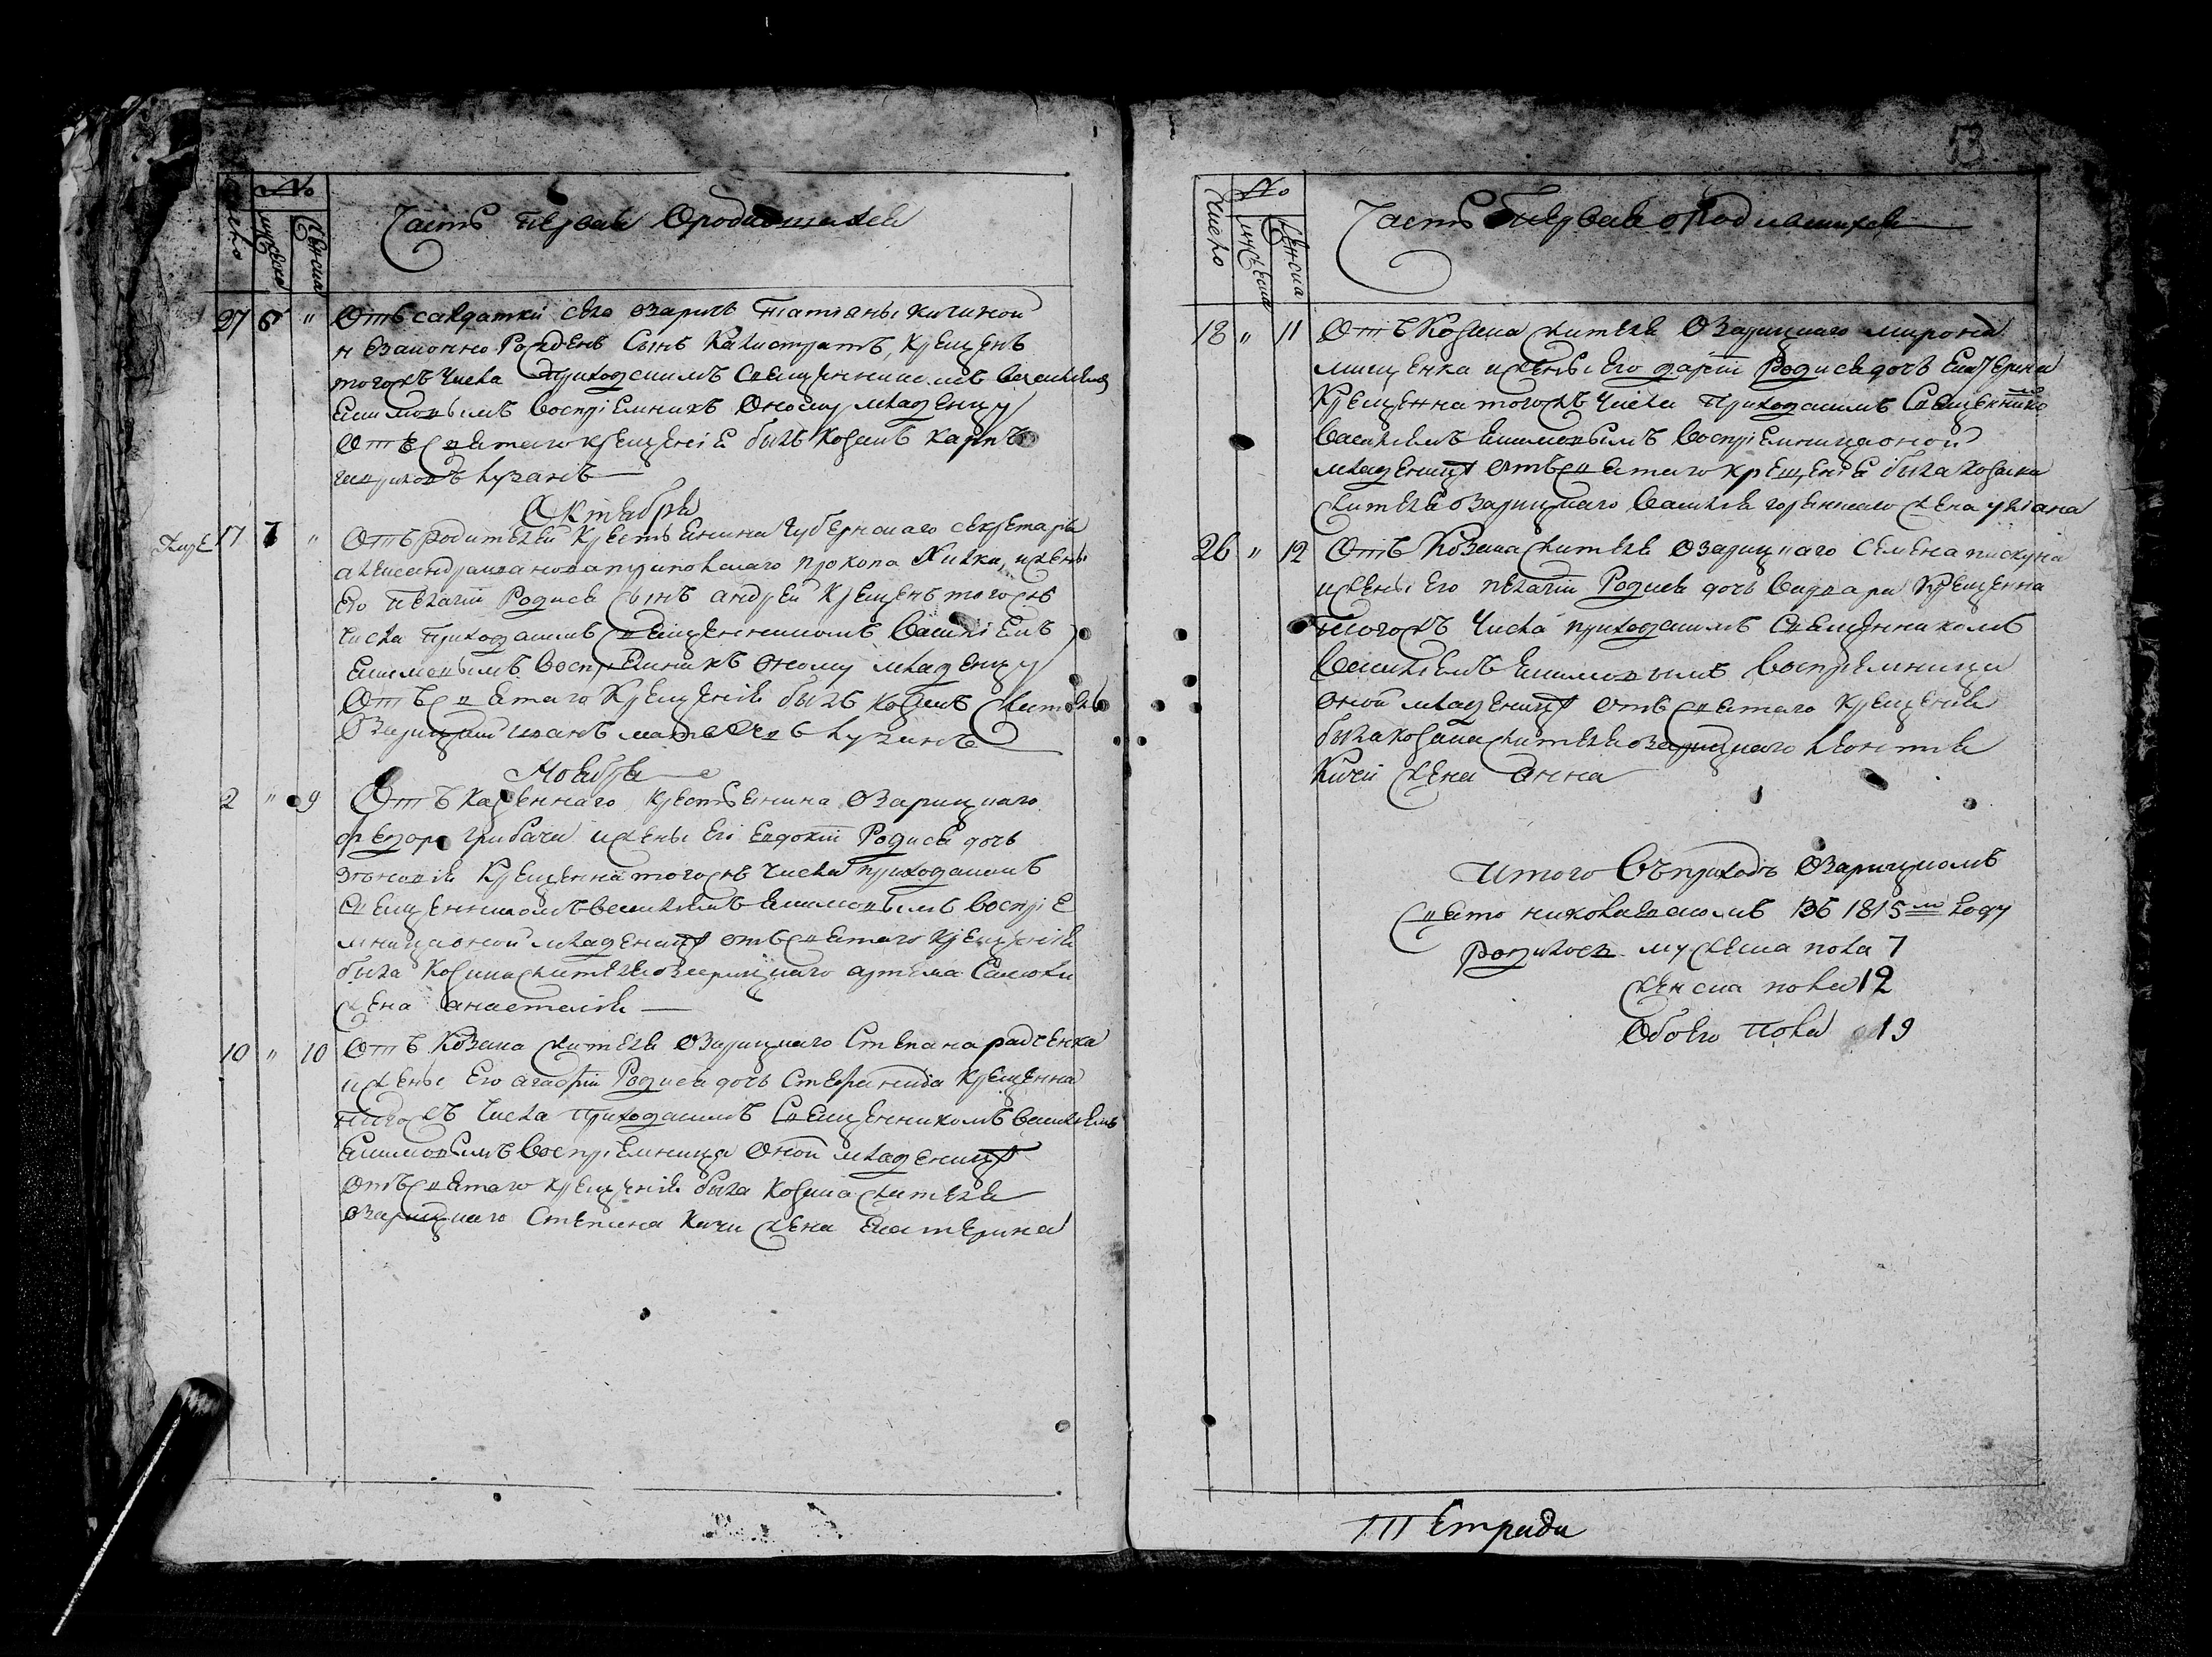 Число
№
мужеска
Женска
Часть первая Ородившихся
27 6 " Отъ салдатки села Озаричъ Татіяны Кичиной
незаконно рожденъ сынъ Калистратъ, крещенъ
тогожъ числа приходскимъ священникомъ Василіемъ
Екимовымъ воспріемникъ оному младенцу
отъ святаго крещенія былъ козакъ Карпъ
Лузанъ
Октября
17 7 " Отъ родителей крестьянина губернскаго секретаря
александра Иванова Прокопа Хилка, и жены
его Пелагіи Родися сынъ андрей крещенъ тогожъ
числа приходскимъ священникомъ Василіемъ
Екимовымъ воспріемникъ оному младенцу
отъ святаго крещенія былъ козакъ житель
Озарицкій иванъ Матвеевъ Лузанъ
Ноября
2 " 9 Отъ казеннаго крестьянина Озарицкаго
федора Грибача и жены его Евдокіи Родися дочь
Зѣновія крещенна тогожъ числа приходскимъ
священникомъ василіемъ Екимовымъ воспріе
мница оной младеницѣ отъ святаго крещенія
была козака жителя Озарицкаго артема
жена анастасія
10 " 10 Отъ козака жителя Озарицкаго Степана радченка
и жены его агафіи Родися дочь Стефанида крещенна
тогожъ числа приходскимъ священникомъ василіемъ
Екимовымъ воспріемница оной младеницѣ
отъ святаго крещенія была козака жителя
Озарицкаго Степана Кичи жена Екатерина
53
Число
№
мужеска
Женска
Часть Первая о Родившихся
18 " 11 Отъ козака жителя Озарицкаго мирона
мищенка и жены его даріи Родися дочь Екатерина
крещенна тогожъ числа приходскимъ священникомъ
Василіемъ Екимовымъ воспріемница оной
младеницѣ отъ святаго крещенія была козака
жителя Озарицкаго Василія жена уліана
26 " 12 Отъ козака жителя Озарицкаго Семена пискуна
и жены его пелагіи Родися дочь Варвара крещенна
тогожъ числа приходскимъ священникомъ
Василіемъ Екимовымъ воспріемница
оной младеницѣ отъ святаго крещенія
была козака жителя озарицкаго Леонтія
Кичи жена анна
Итого въ приходѣ Озарицкомъ
свято николаевскомъ въ 1815м году
родилось мужеска пола 7
женска пола 12
Обоего пола 19
Тетради